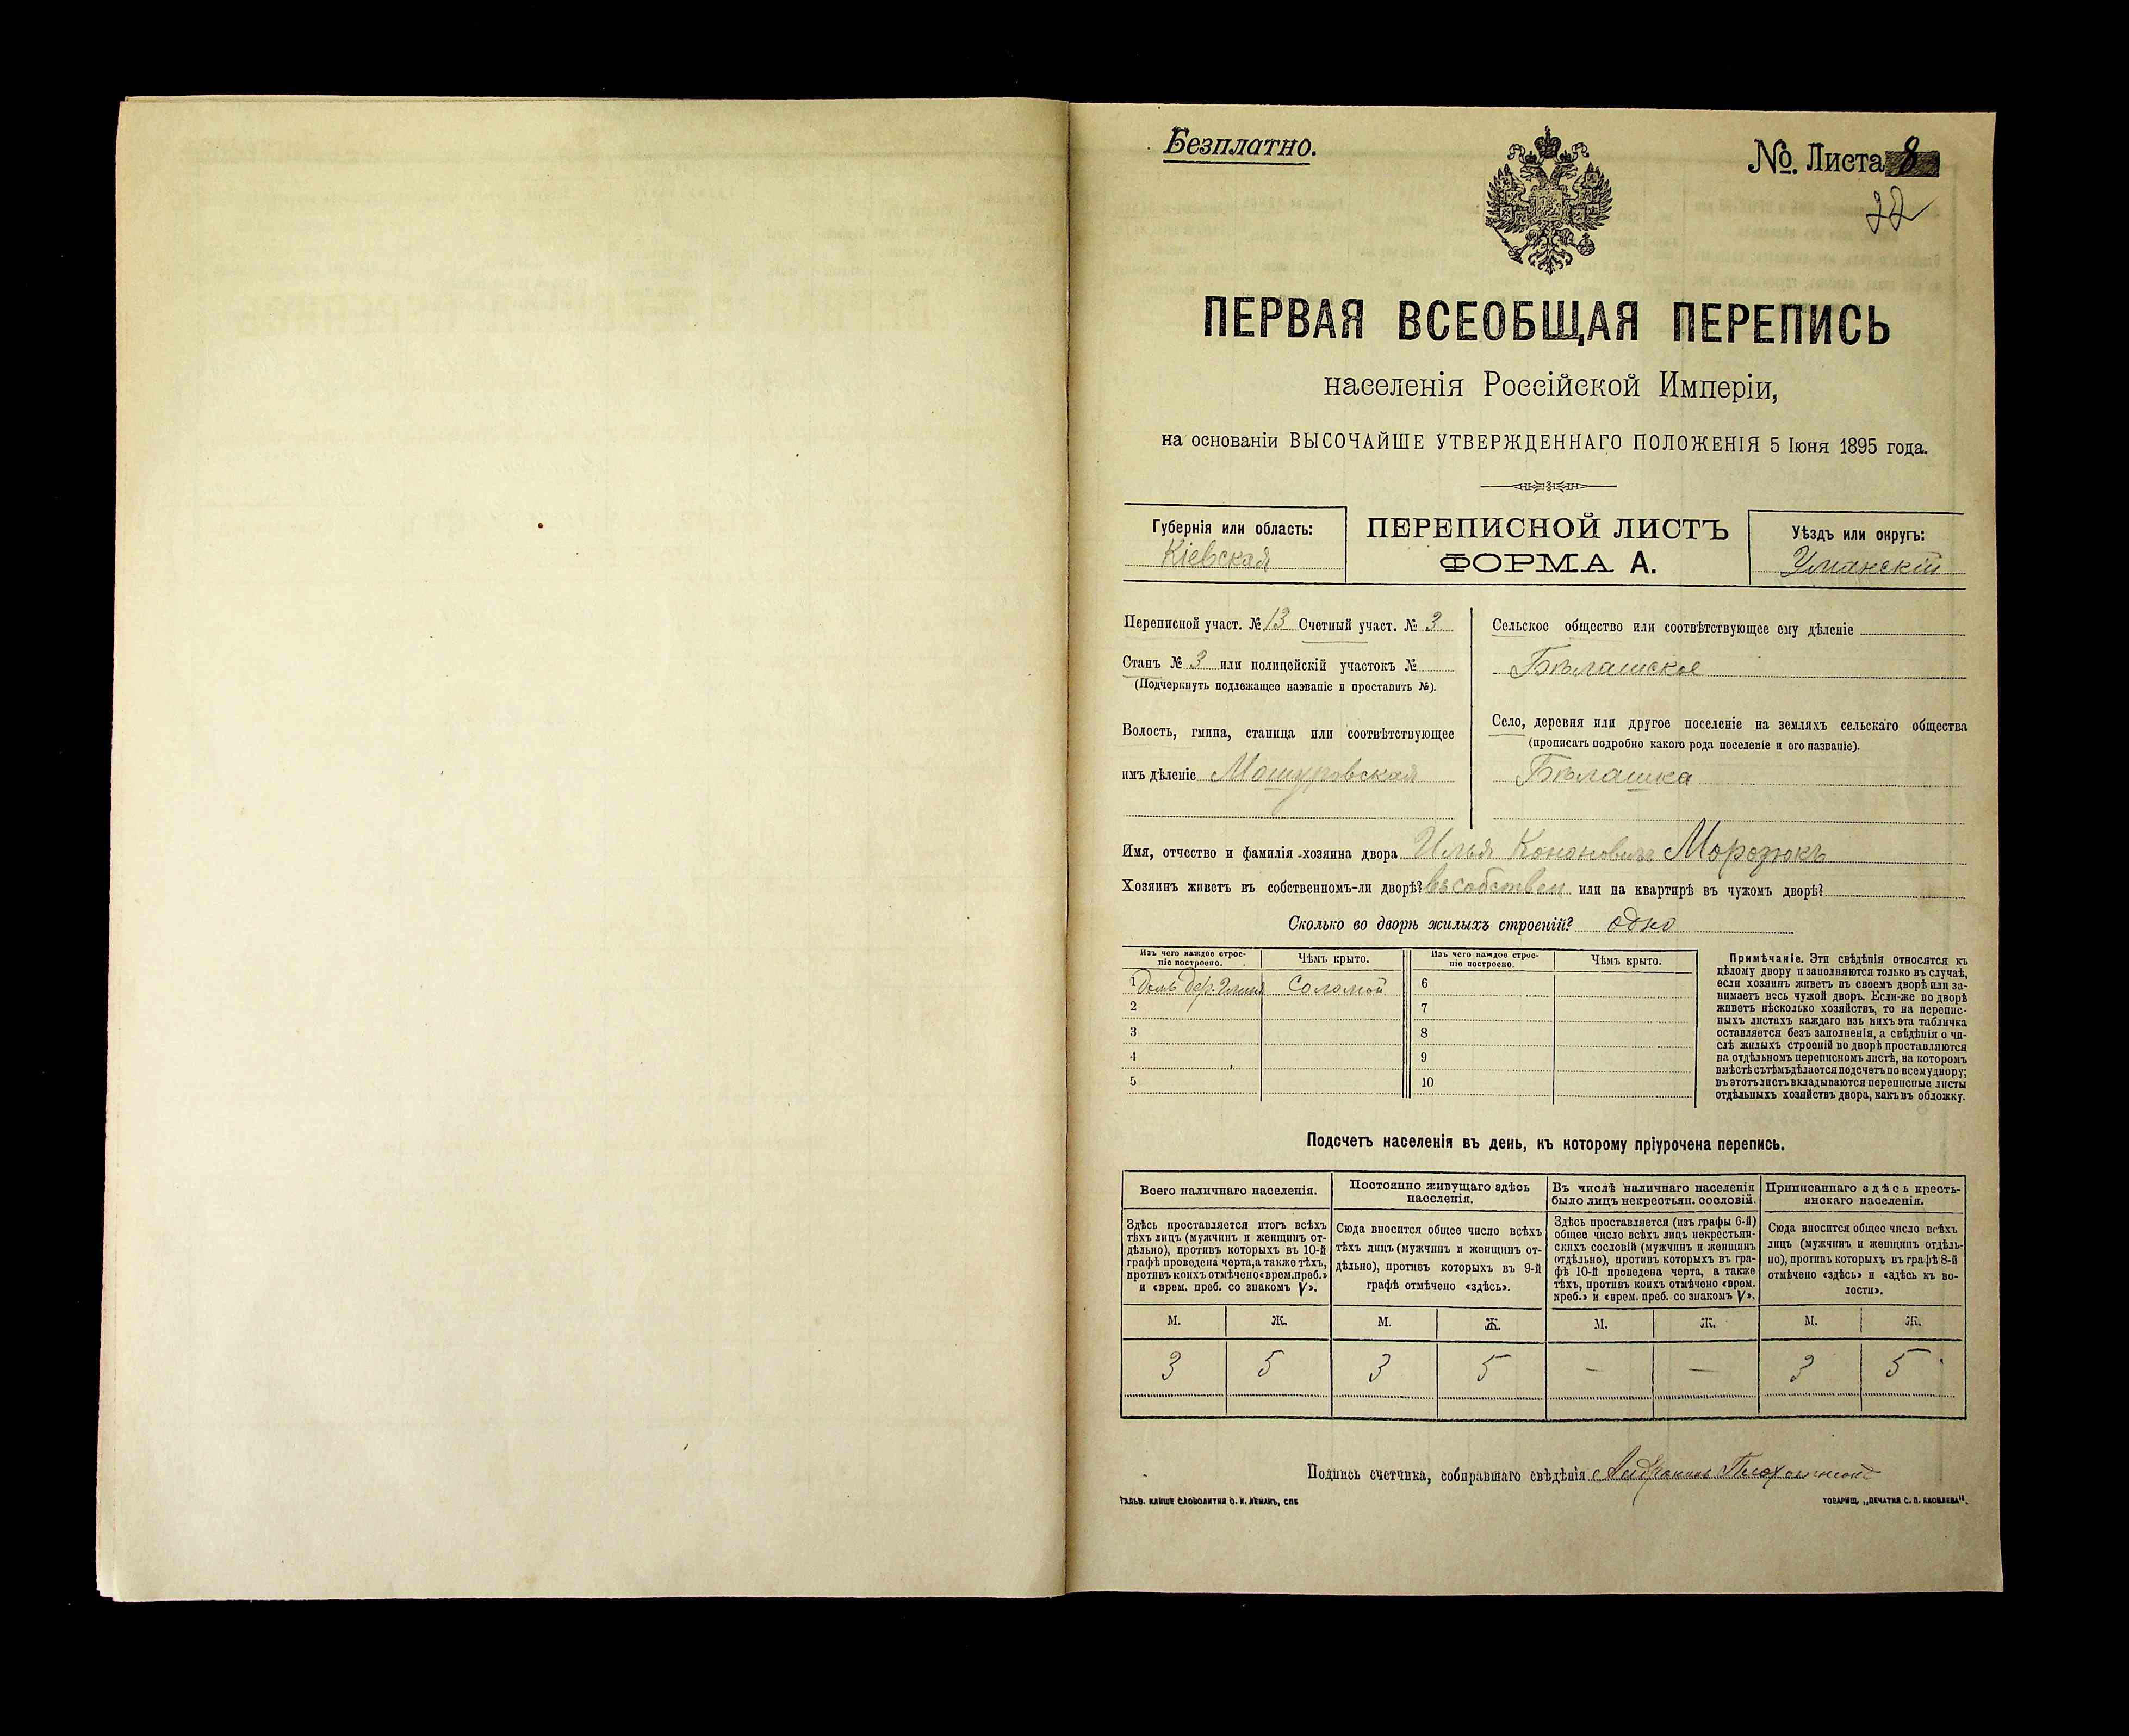 Безплатно.
№. Листа 8
22
ПЕРВАЯ ВСЕОБЩАЯ ПЕРЕПИСЬ
населенія Россійской Имперіи,
на основаніи ВЫСОЧАЙШЕ УТВЕРЖДЕННАГО ПОЛОЖЕНІЯ 5 Іюня 1895 года.
Губернія или область:
Кіевская
ПЕРЕПИСНОЙ ЛИСТЪ
ФОРМА А.
Уѣздъ или округъ:
Уманскій
Переписной участ. № 13 Счетный участ. № 3
Станъ № 3 или полицейскій участокъ №
(Подчеркнуть подлежащее названіе и проставить №).
Волость, гмина, станица или соотвѣтствующее
имъ дѣленіе Машуровская
Сельское общество или соотвѣтствующее ему дѣленіе
Бѣлашское
Село, деревня или другое поселеніе на земляхъ сельскаго общества
(прописать подробно какого рода поселеніе и его названіе).
Бѣлашка
Имя, отчество и фамилія хозяина двора Илья Кононовичъ Морозюкъ
Хозяинъ живетъ въ собственномъ-ли дворѣ? въ собствен или на квартирѣ въ чужомъ дворѣ?
Сколько во дворѣ жилыхъ строеній? одно
Изъ чего каждое строе-
ніе построено.
Чѣмъ крыто.
Изъ чего каждое строе-
ніе построено.
Чѣмъ крыто.
1 домъ дер. Глина Соломой 6
2 7
3 8
4 9
5 10
Примѣчаніе. Эти свѣдѣнія относятся къ
цѣлому двору и заполняются только въ случаѣ,
если хозяинъ живетъ въ своемъ дворѣ или за-
нимаетъ весь чужой дворъ. Если-же во дворѣ
живетъ нѣсколько хозяйствъ, то на перепис-
ныхъ листахъ каждаго изъ нихъ эта табличка
оставляется безъ заполненія, а свѣдѣнія о чи-
слѣ жилыхъ строеній во дворѣ проставляются
на отдѣльномъ переписномъ листѣ, на которомъ
вмѣстѣ съ тѣмъ дѣлается подсчетъ по всему двору;
въ этотъ листъ вкладываются переписные листы
отдѣльныхъ хозяйствъ двора, какъ въ обложку.
Подсчетъ населенія въ день, къ которому пріурочена перепись.
Всего наличнаго населенія.
Здѣсь проставляется итогъ всѣхъ
тѣхъ лицъ (мужчинъ и женщинъ от-
дѣльно), противъ которыхъ въ 10-й
графѣ проведена черта, а также тѣхъ,
противъ коихъ отмѣчено «врем. преб.»
и «врем. преб. со знакомъ V».
Постоянно живущаго здѣсь
населенія.
Сюда вносится общее число всѣхъ
тѣхъ лицъ (мужчинъ и женщинъ от-
дѣльно), противъ которыхъ въ 9-й
графѣ отмѣчено «здѣсь».
Въ числѣ наличнаго населенія
было лицъ некрестьян. сословій.
Здѣсь проставляется (изъ графы 6-й)
общее число всѣхъ лицъ некрестьян-
скихъ сословій (мужчинъ и женщинъ
отдѣльно), противъ которыхъ въ гра-
фѣ 10-й проведена черта, а также
тѣхъ, противъ коихъ отмѣчено «врем.
преб.» и «врем. преб. со знакомъ V».
Приписаннаго здѣсь кресть-
янскаго населенія.
Сюда вносится общее число всѣхъ
лицъ (мужчинъ и женщинъ отдѣль-
но), противъ которыхъ въ графѣ 8-й
отмѣчено «здѣсь» и «здѣсь къ во-
лости».
М. Ж. М. Ж. М. Ж. М. Ж.
3 5 3 5 — — 3 5
Подпись счетчика, собиравшаго свѣдѣнія
ГАЛЬВ. КЛИШЕ СЛОВОЛИТНИ О. И. ЛЕМАНЪ, СПБ
ТОВАРИЩ. „ПЕЧАТНЯ С. П. ЯКОВЛЕВА".